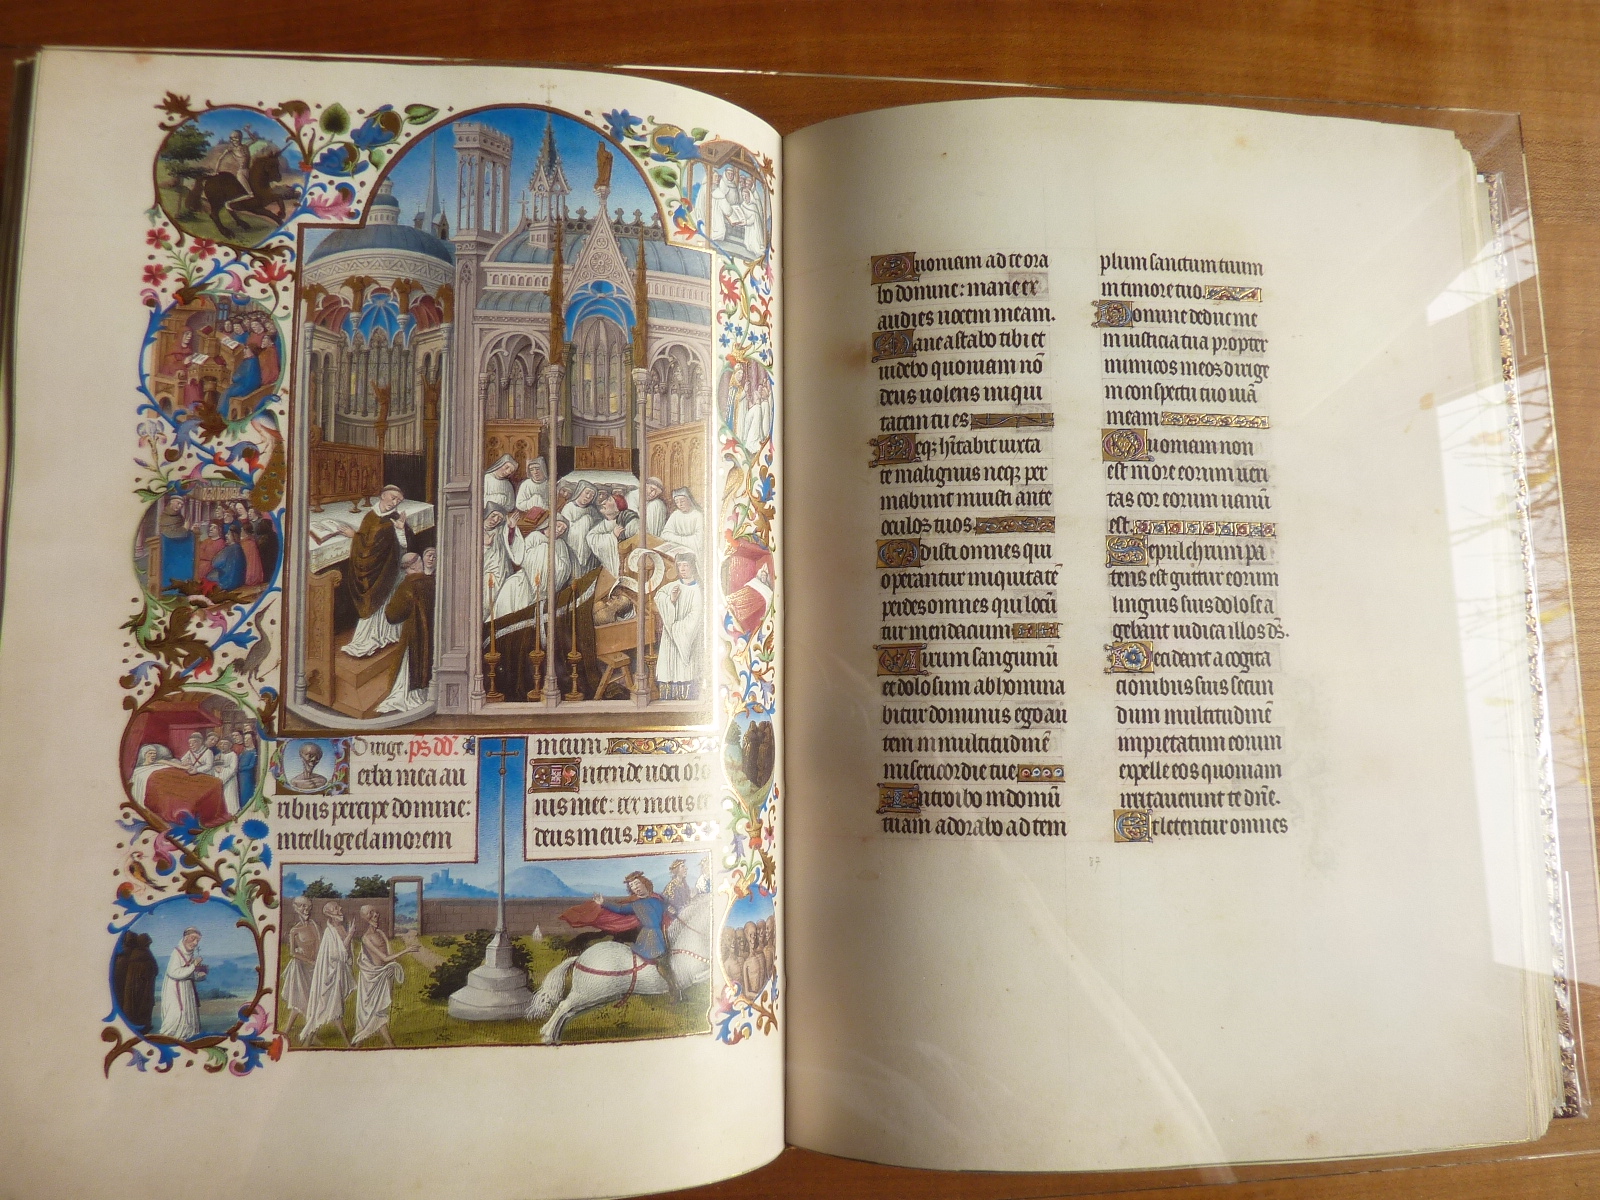 Dirige. ps dd.
Verba mea au
ribus percipe domine:
intellige clamorem
meum.
Intende uoci orõ
nis mee: rex meus et
deus meus.
Quoniam ad te ora
bo domine: mane ex
audies uocem meam.
Mane astabo tibi et
uidebo quoniam nõ
deus uolens iniqui
tatem tu es.
Neqz hĩtabit iuxta
te malignus neqz per
manebunt iniusti ante
oculos tuos.
Odisti omnes qui
operantur iniquitatẽ
perdes omnes qui locũ
tur mendacium
Virum sanguinũ
et dolosum abhomina
bitur dominus ego aũ
tem in multitudinẽ
misericordie tue
Introibo in domũ
tuam adorabo ad tem
plum sanctum tuum
in timore tuo.
Domine deduc me
in iusticia tua propter
inimicos meos dirige
in conspectu tuo uiã
meam
Quoniam non
est in ore eorum ueri
tas cor eorum uanũ
est.
Sepulchrum pa
tens est guttur eorum
linguis suis dolose a
gebant iudica illos ds̃.
Decidant a cogita
cionibus suis secun
dum multitudinẽ
impietatum eorum
expelle eos quoniam
irritauerunt te dñe.
Et letentur omnes
87